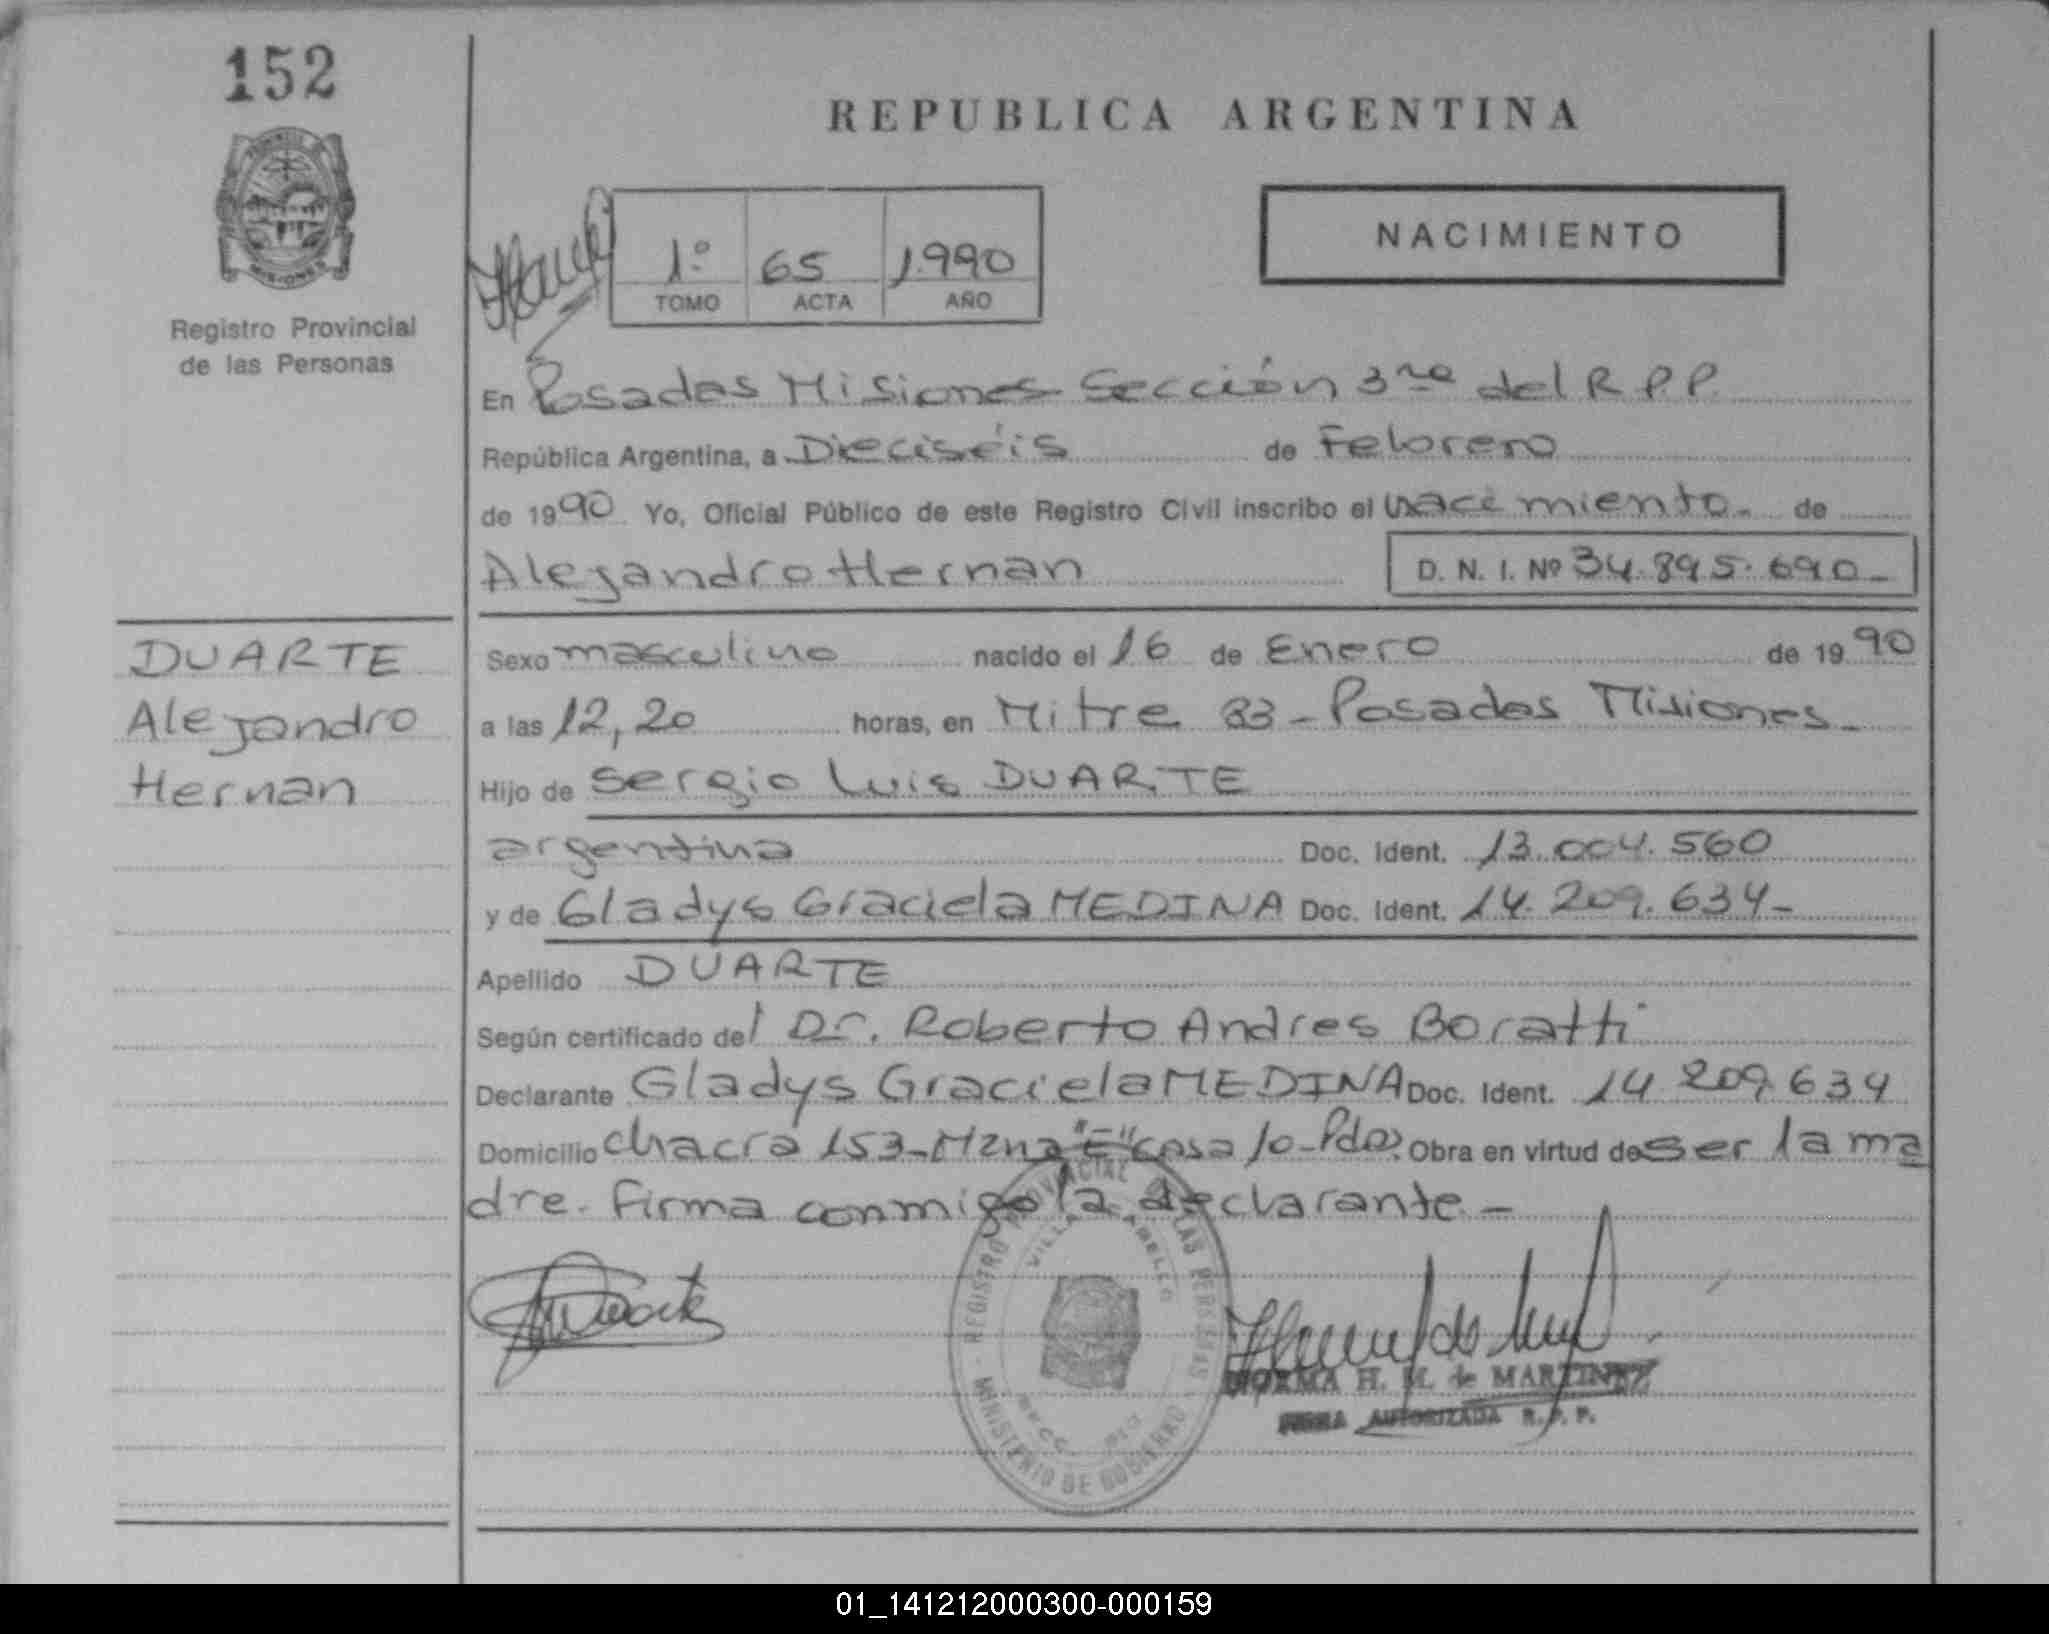 152
REPUBLICA ARGENTINA
MISIONES
Registro Provincial
de las Personas
1º 65 1990
TOMO ACTA AÑO
NACIMIENTO
En Posadas Misiones Sección 3ra del R.P.P.
República Argentina, a Dieciséis de Febrero
de 1990 Yo, Oficial Público de este Registro Civil inscribo el nacimiento. de
Alejandro Hernan D. N. I. Nº 34.895.690-
DUARTE
Alejandro
Hernan
Sexo masculino nacido el 16 de Enero de 1990
a las 12,20 horas, en Mitre 83 - Posadas Misiones-
Hijo de Sergio Luis DUARTE
argentina Doc. Ident. 13.004.560
y de Gladys Graciela MEDINA Doc. Ident. 14.209.634-
Apellido DUARTE
Según certificado del Dr. Roberto Andres Boratti
Declarante Gladys Graciela MEDINA Doc. Ident. 14 209.634
Domicilio Chacra 153-Mzna "E" casa 10-Pdas. Obra en virtud de ser la ma
dre. Firma conmigo la declarante.-
REGISTRO PROVINCIAL DE LAS PERSONAS
VILLA CABELLO
MINISTERIO DE GOBIERNO
NORMA H. M. de MARTINEZ
FIRMA AUTORIZADA R. P. P.
01_141212000300-000159